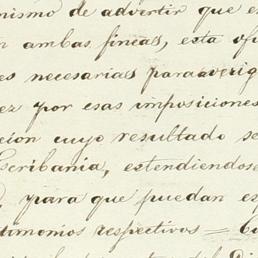 nismo de advertir que e
n ambas fincas, esta ofi
es necesarias para averig
ez por esas imposiciones
cion cuyo resultado se
Escribania, estendiendose
para que puedan ex
timonios respectivos =